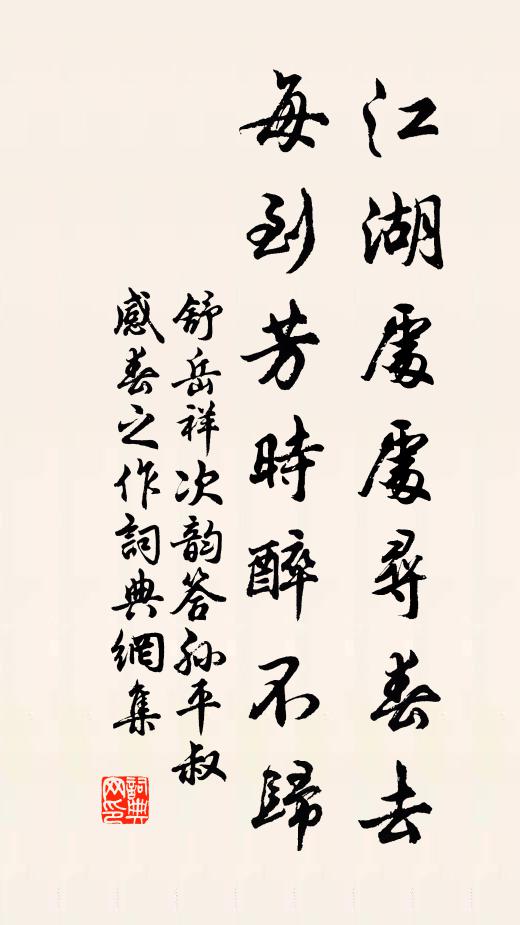 江湖處處尋春去
每到芳時醉不歸
舒岳祥次韵答孙平叔
感春之作詞典網集
詞典网印